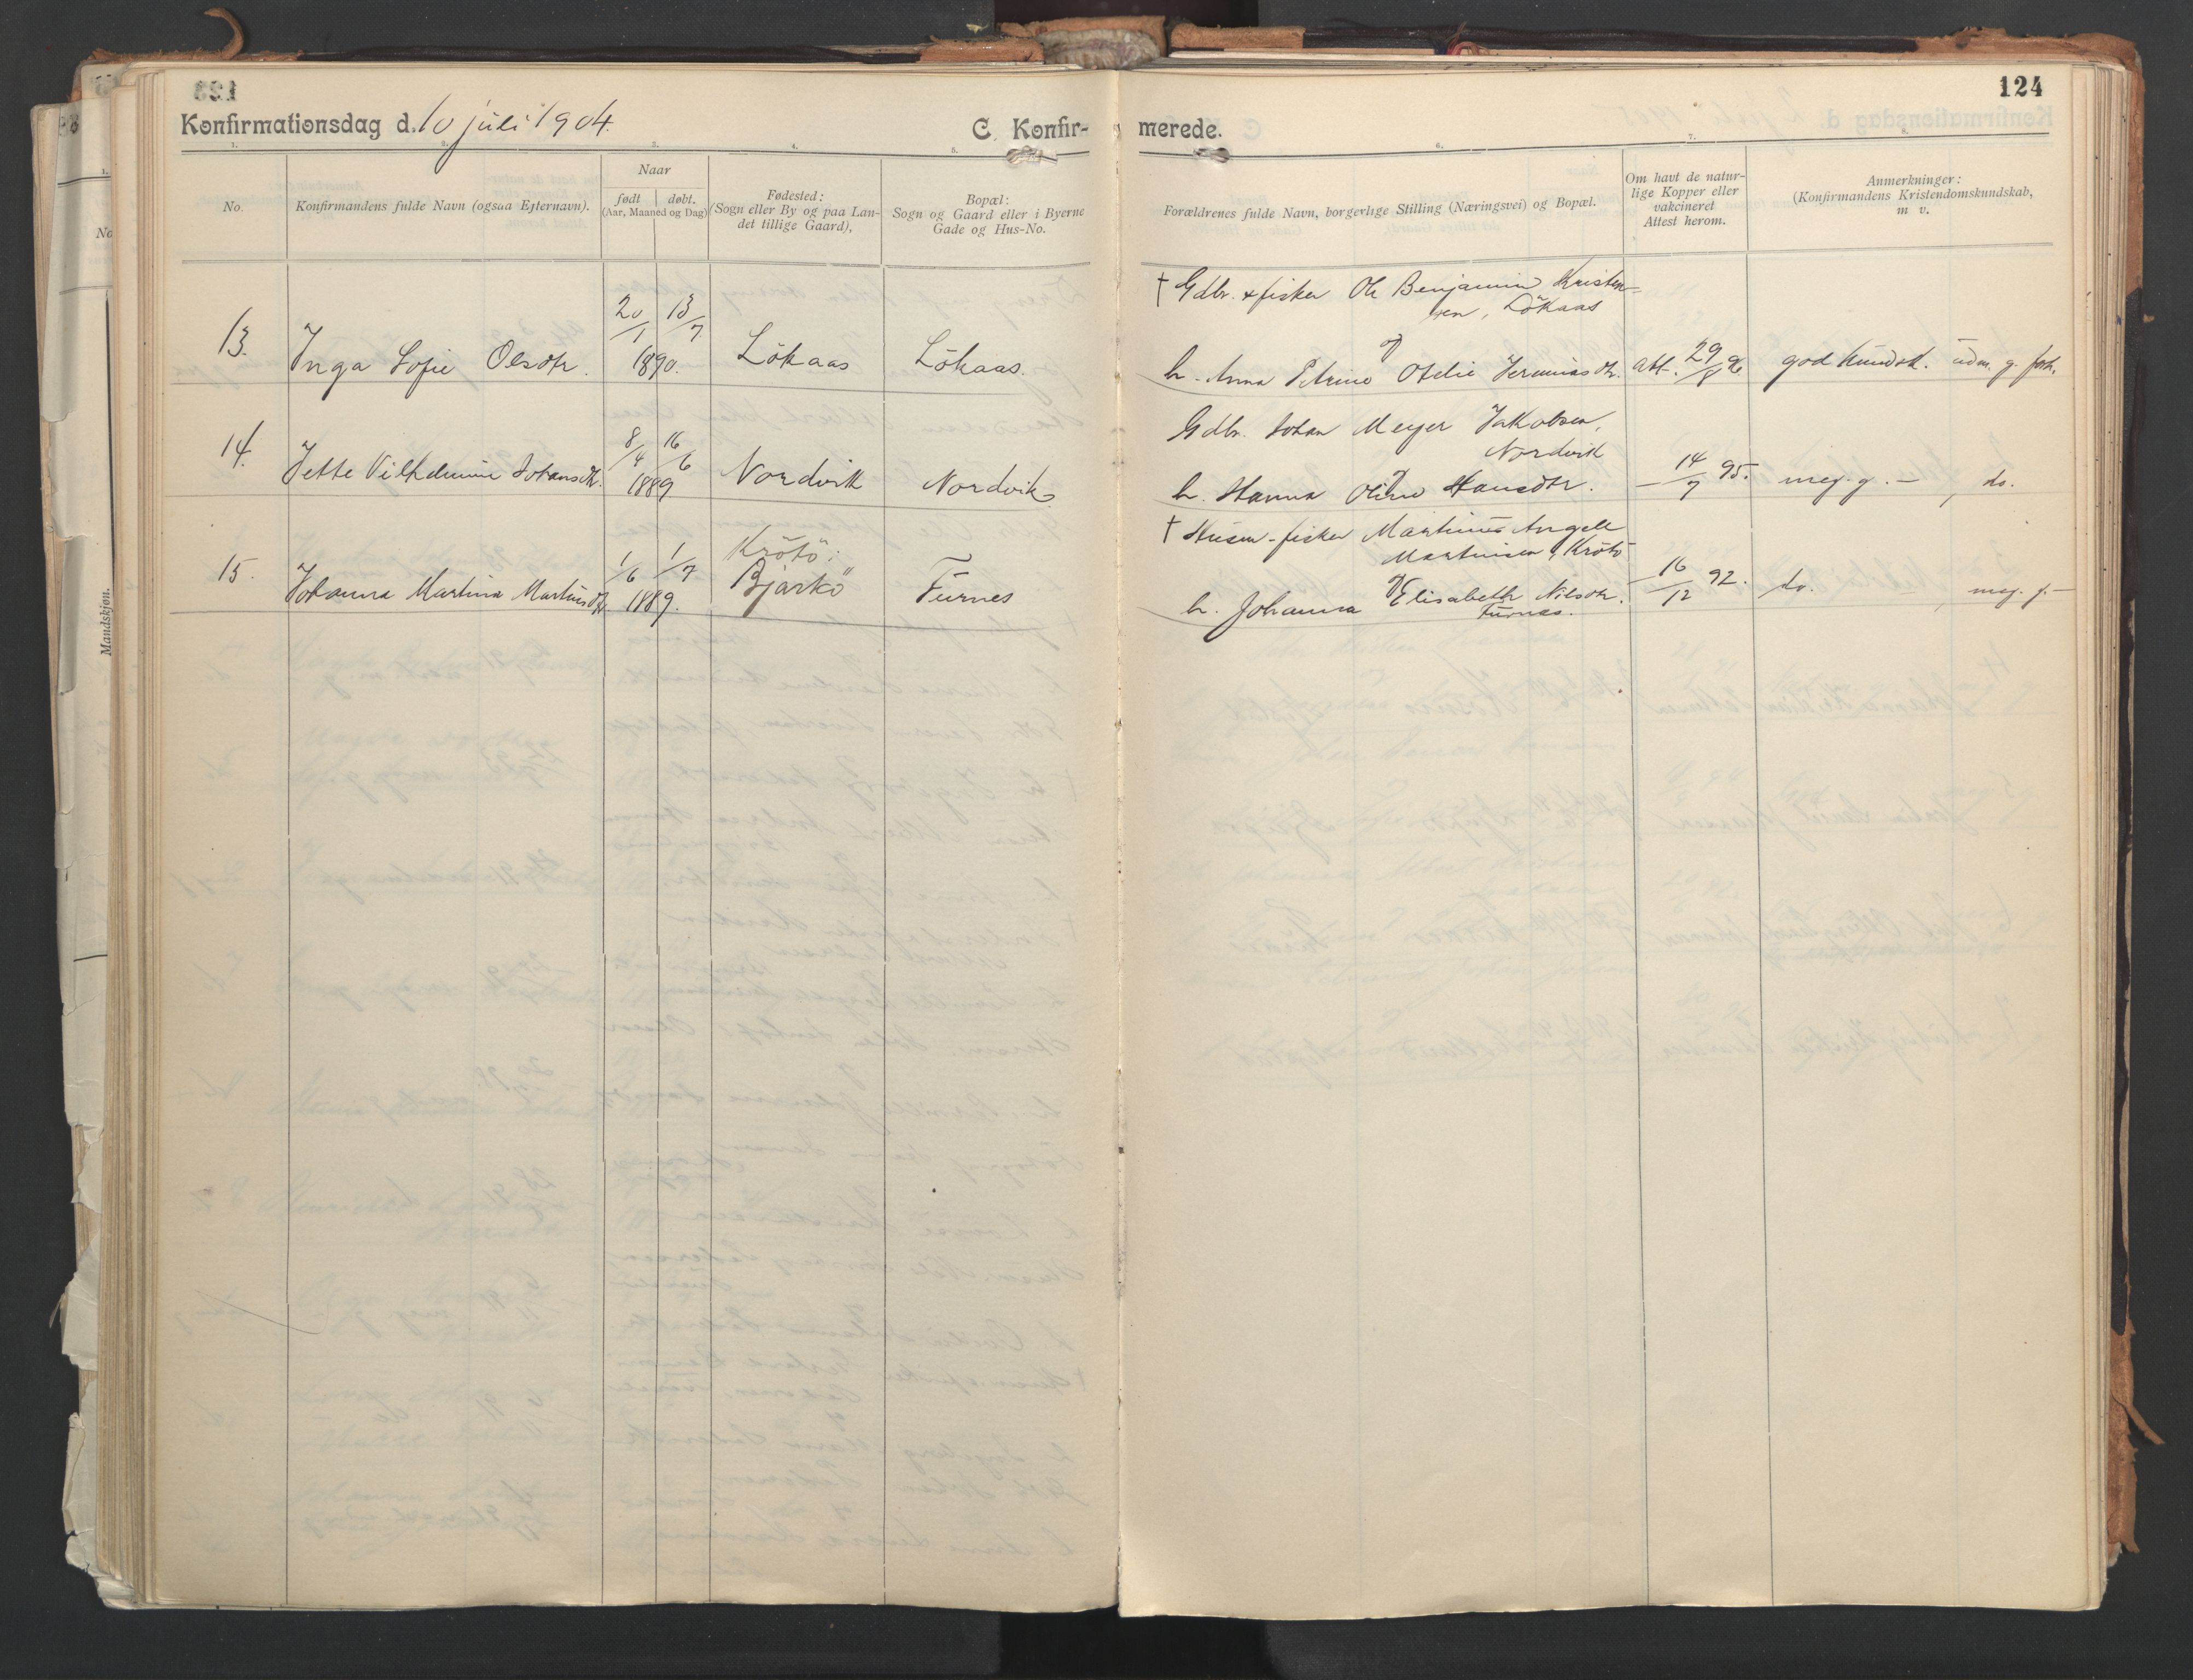 124
Konfirmationsdag d. 10 juli 1904.
C. Konfir-
merede.
1.
2.
3.
4.
5.
6.
7.
8.
No.
Konfirmandens fulde Navn (ogsaa Efternavn).
Naar
født
døbt.
(Aar, Maaned og Dag)
Fødested:
(Sogn eller By og paa Lan-
det tillige Gaard),
Bopæl:
Sogn og Gaard eller i Byerne
Gade og Hus-No.
Forældrenes fulde Navn, borgerlige Stilling (Næringsvei) og Bopæl.
Om havt de natur-
lige Kopper eller
vakcineret
Attest herom.
Anmerkninger:
(Konfirmandens Kristendomskundskab,
m v.
13.
Inga Sofie Olsdtr.
20/1
13/7
1890.
Lökaas
Lökaas.
† Gdbr. & fisker Ole Benjamin Kristen-
sen, Lökaas
h. Anna Petrine Otelie Jeremiasdtr.
Att. 29/8 96.
god Kundsk. udm. g. forh.
14.
Jette Vilhelmine Johansdtr.
8/4
16/6
1889
Nordvik
Nordvik
Gdbr. Johan Meyer Jakobsen,
Nordvik
h. Hanna Oline Hansdtr.
— 14/7 95.
meg. g. — , do.
15.
Johanna Martina Martinsdtr.
1/6
1/7
1889.
Krötö:
Bjarkö
Furnes
† Husm.-fisker Martinus Angell
Martinsen, Krötö
h. Johanna Elisabeth Nilsdtr.
Furnes.
— 16/12 92.
do. , meg. g. —
Mandskjøn.